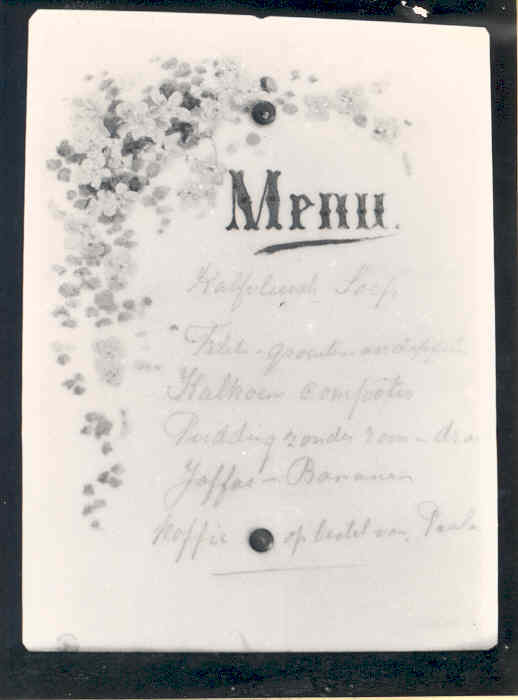 Menu.
Kalfvleesch Soep
Filet - groenten aardappelen
Kalkoen compotes
Pudding zonder room -
Jaffas - Bananen
Koffie op bestel van Paula